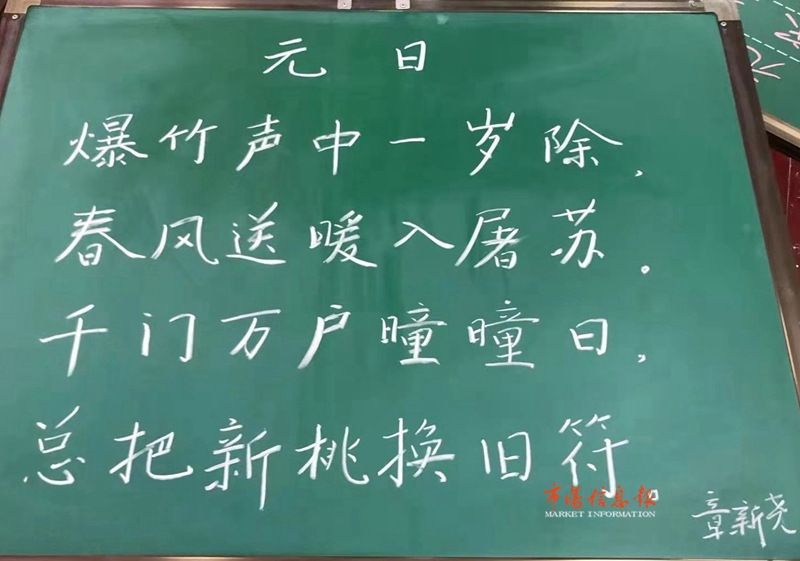 元日
爆竹声中一岁除，
春风送暖入屠苏。
千门万户曈曈日，
总把新桃换旧符。
市场信息报
MARKET INFORMATION
章新尧